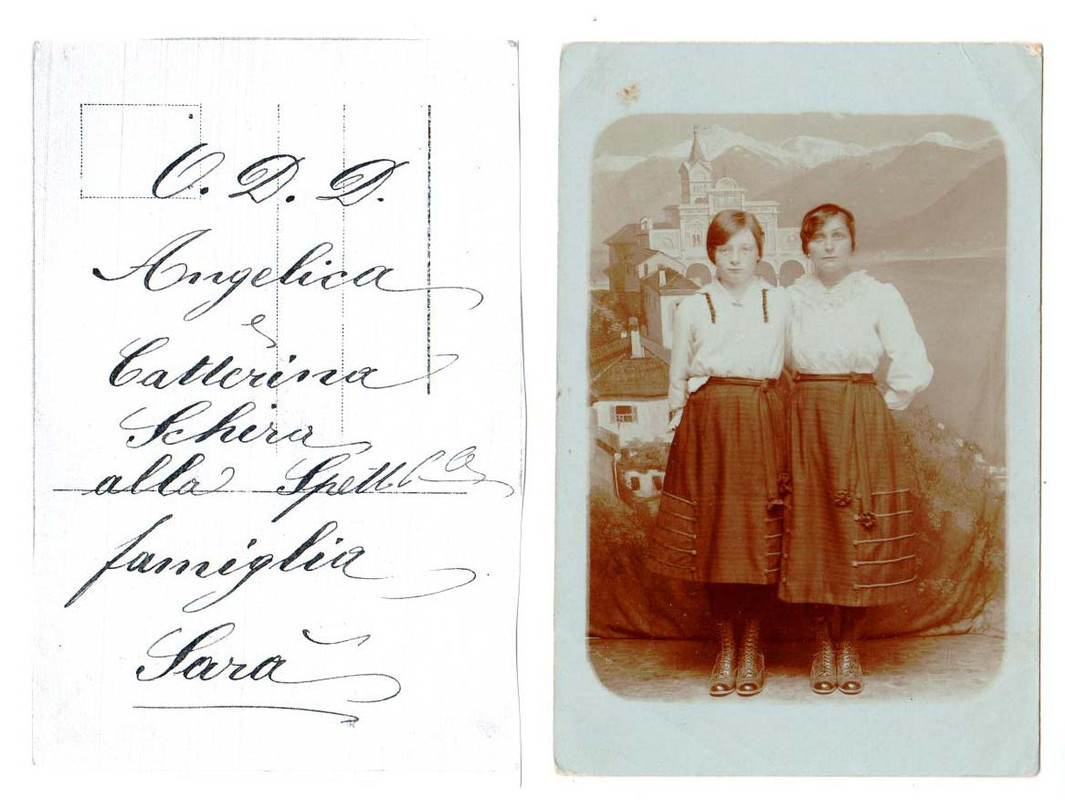 O. D. D.
Angelica
e
Catterina
Schira
alla Spett.
famiglia
Sara